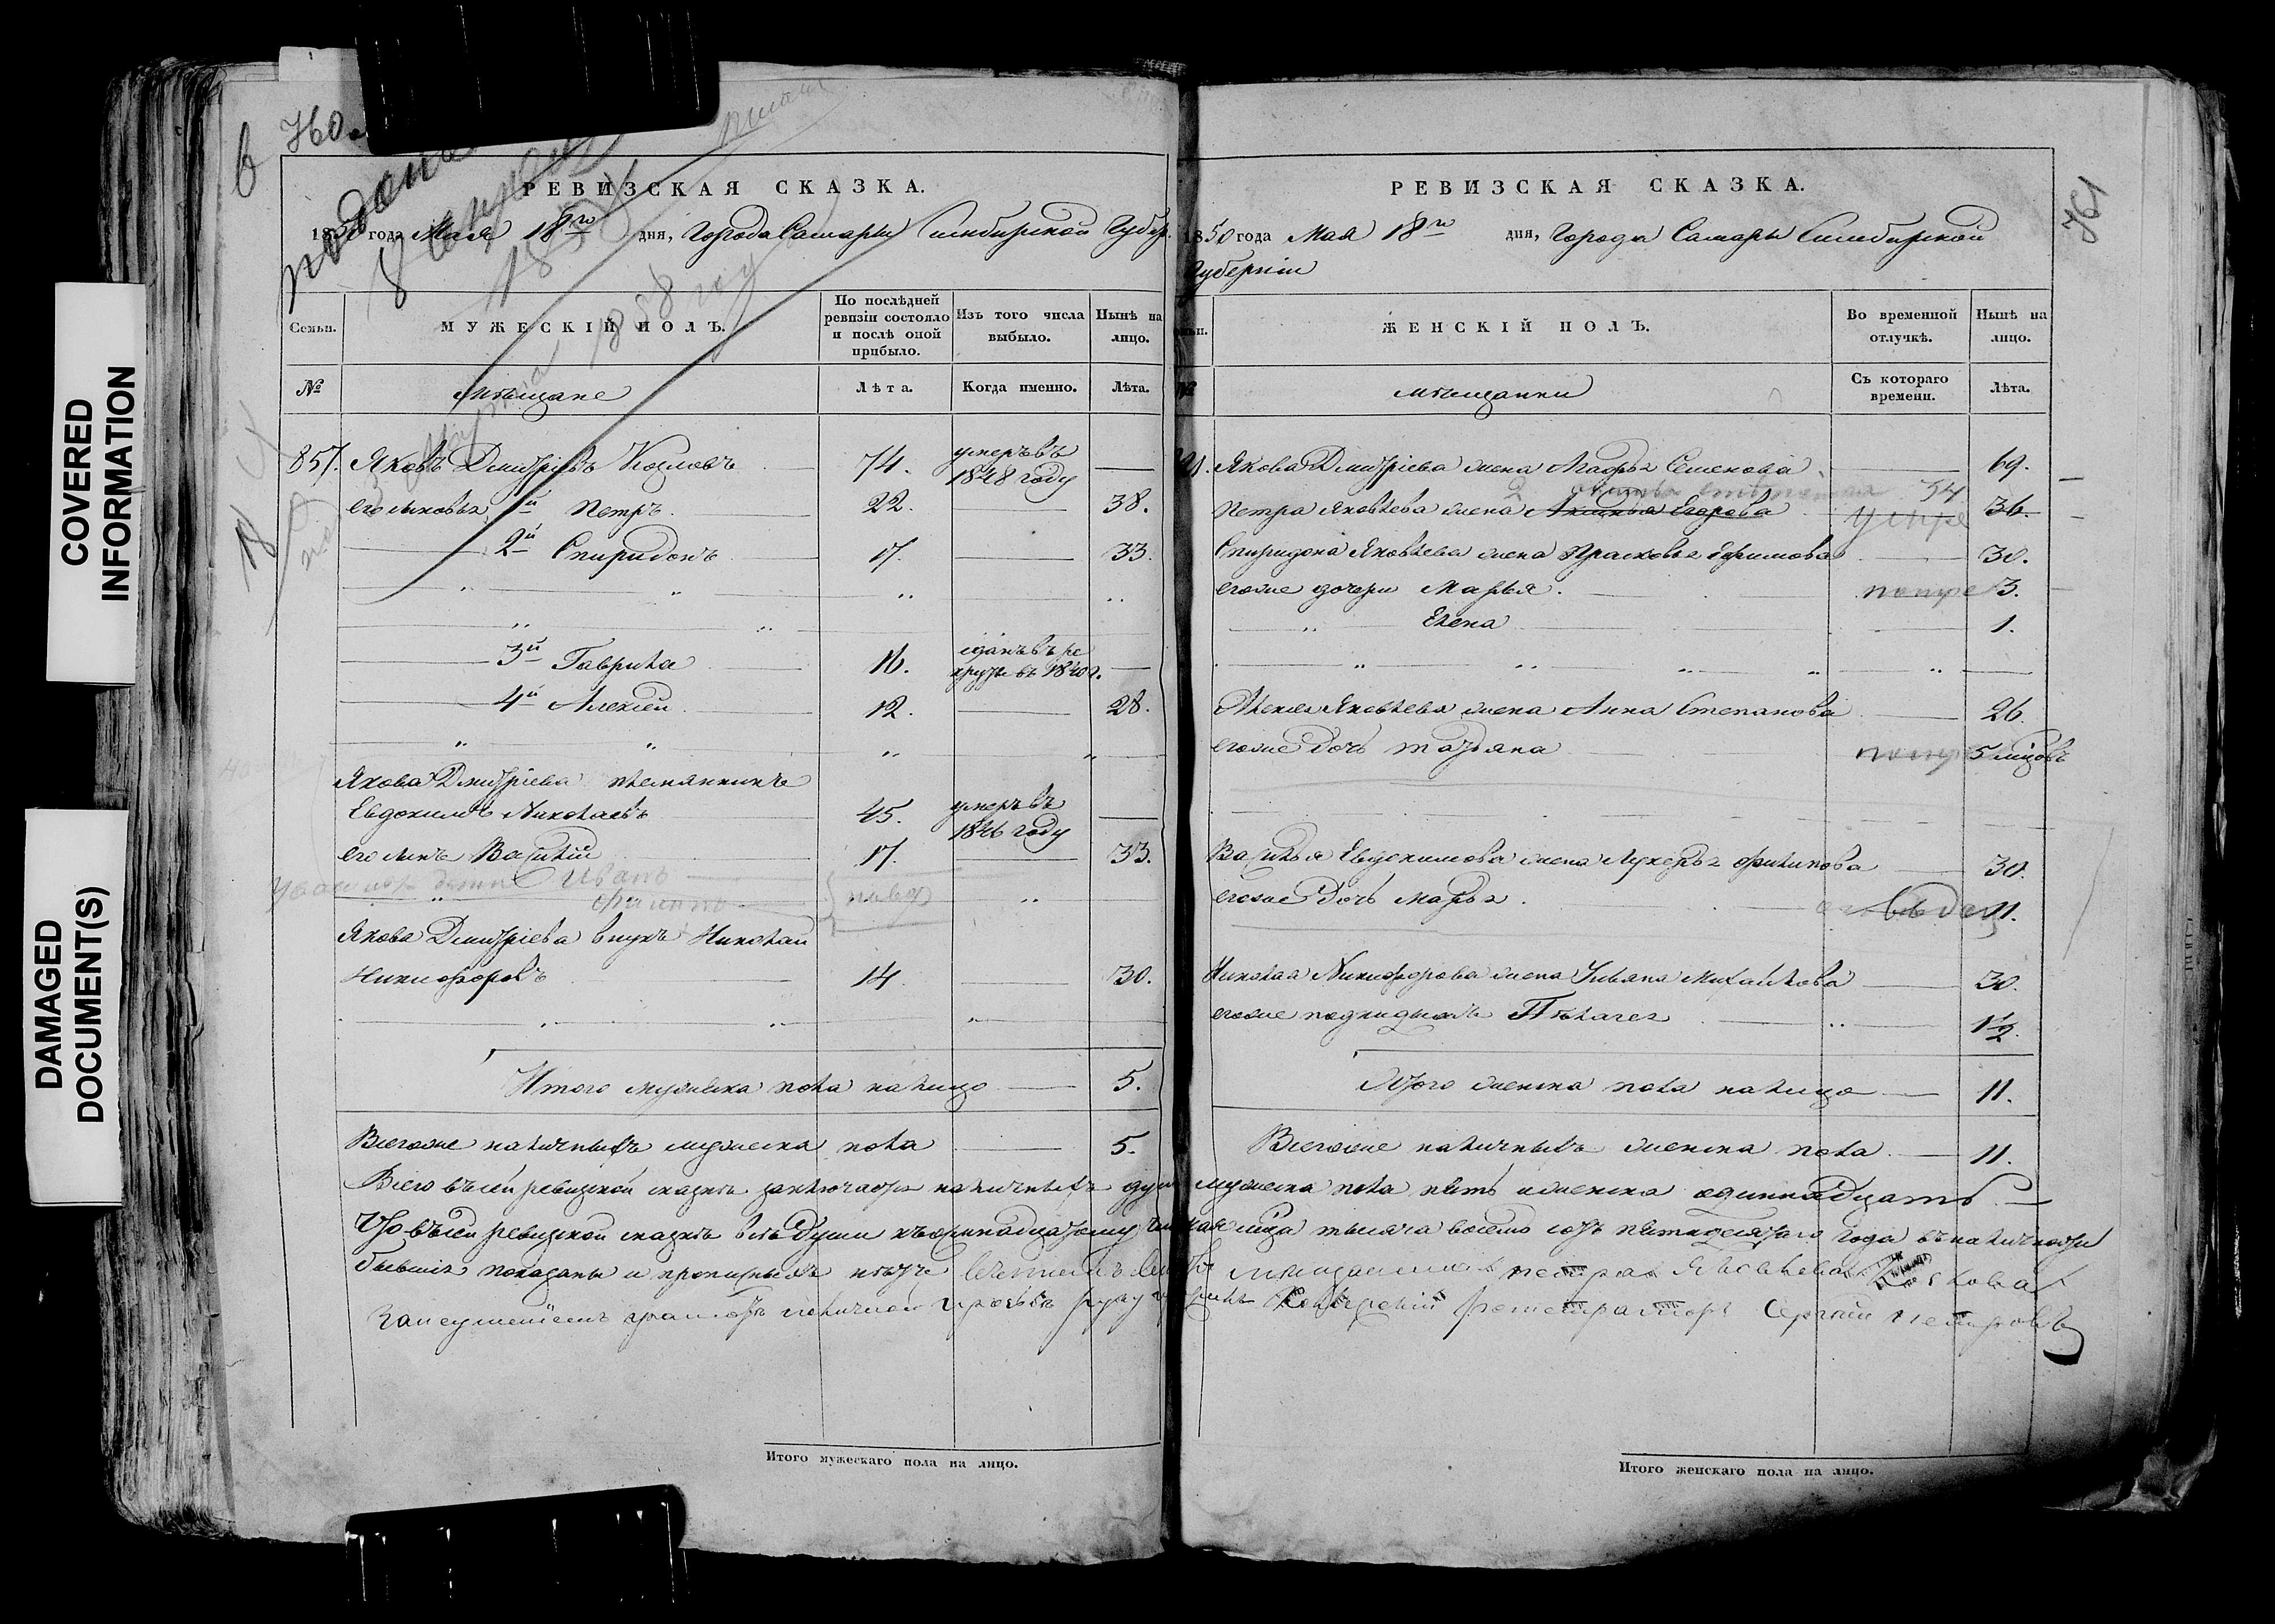 COVERED
INFORMATION
DAMAGED
DOCUMENT(S)
760.
РЕВИЗСКАЯ СКАЗКА.
1850 года Мая 18го дня, Города Самары Симбирской Губер.
Семьи.
МУЖЕСКІЙ ПОЛЪ.
По послѣдней ревизіи состояло и послѣ оной прибыло.
Изъ того числа выбыло.
Нынѣ на лицо.
№
мѣщане
Лѣта.
Когда именно.
Лѣта.
857. Яковъ Дмитріевъ Козловъ 74. умеръ въ 1848 году
его сыновья 1й Петръ 22. 38.
2й Спиридонъ 17. 33.
3й Гаврила 16. сданъ въ рекруты въ 1840 г.
4й Алексей 12. 28.
Якова Дмитріева племянникъ
Евдокимъ Николаевъ 45. умеръ въ 1846 году
его сынъ Василій 17. 33.
Иванъ
Якова Дмитріева внукъ Николай
Никифоровъ 14. 30.
Итого мужеска пола на лицо 5.
Всегоже наличныхъ мужеска пола 5.
Итого мужескаго пола на лицо.
761
РЕВИЗСКАЯ СКАЗКА.
1850 года Мая 18го дня, Города Самары Симбирской
Губерніи
ЖЕНСКІЙ ПОЛЪ.
Во временной отлучкѣ.
Нынѣ на лицо.
мѣщанки
Съ котораго времени.
Лѣта.
Якова Дмитріева жена Марья Семенова 69.
54
Петра Яковлева жена Акулина Егорова 36.
Спиридона Яковлева жена Прасковья Ефимова 30.
егоже дочери Марья. 3.
Елена 1.
Алексея Яковлева жена Анна Степанова 26.
егоже дочь татьяна 5 мцовъ
Василья Евдокимова жена Лукерья филипова 30.
егоже дочь Марья. 11.
Николая Никифорова жена Ульяна Михайлова 30.
егоже подкидышъ Пелагея 1/2
Итого женска пола на лицо 11.
Всегоже наличныхъ женска пола 11.
Всего въ сей ревизской сказкѣ заключается наличныхъ душъ мужеска пола пять и женска одиннадцать.
Что въ сей ревизской сказкѣ всѣ души къ одинадцатому числу мца тысяча восемь сотъ пятидесятаго года въ наличности
бывшія показаны и прописныхъ нѣтъ
Сергѣй Петровъ
Итого женскаго пола на лицо.